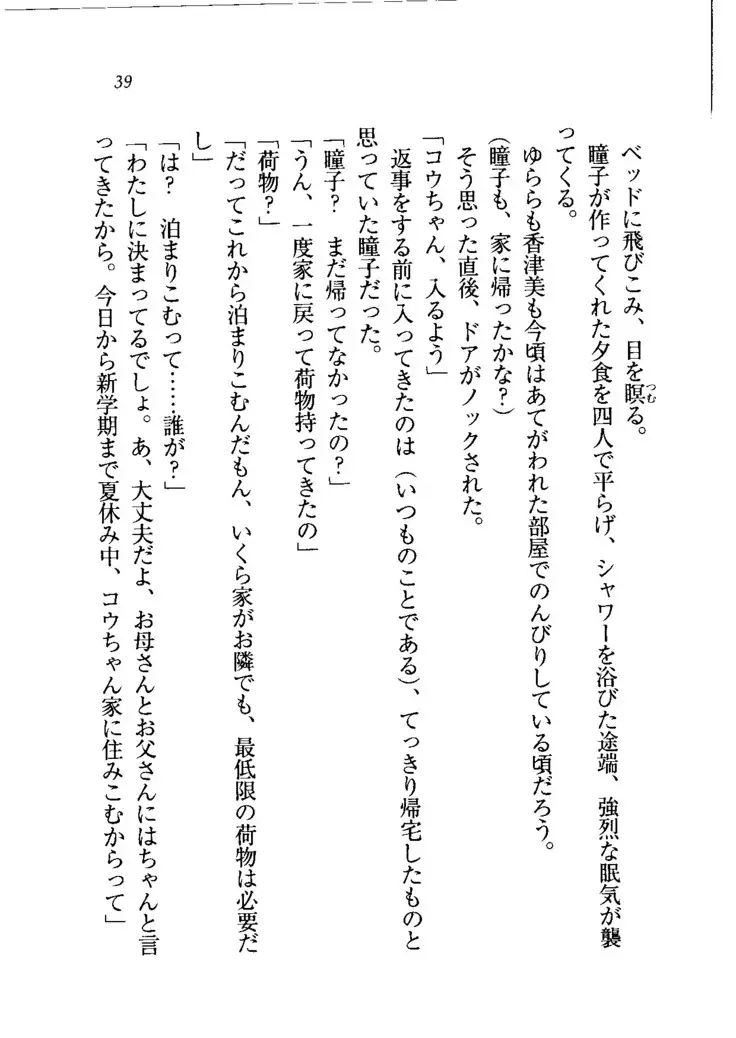 39
ベッドに飛びこみ、目を瞑る。
つむ
瞳子が作ってくれた夕食を四人で平らげ、シャワーを浴びた途端、強烈な眠気が襲
ってくる。
ゆららも香津美も今頃はあてがわれた部屋でのんびりしている頃だろう。
（瞳子も、家に帰ったかな？）
そう思った直後、ドアがノックされた。
「コウちゃん、入るよう」
返事をする前に入ってきたのは（いつものことである）、てっきり帰宅したものと
思っていた瞳子だった。
「瞳子？　まだ帰ってなかったの？」
「うん、一度家に戻って荷物持ってきたの」
「荷物？」
「だってこれから泊まりこむんだもん、いくら家がお隣でも、最低限の荷物は必要だ
し」
「は？　泊まりこむって……誰が？」
「わたしに決まってるでしょ。あ、大丈夫だよ、お母さんとお父さんにはちゃんと言
ってきたから。今日から新学期まで夏休み中、コウちゃん家に住みこむからって」